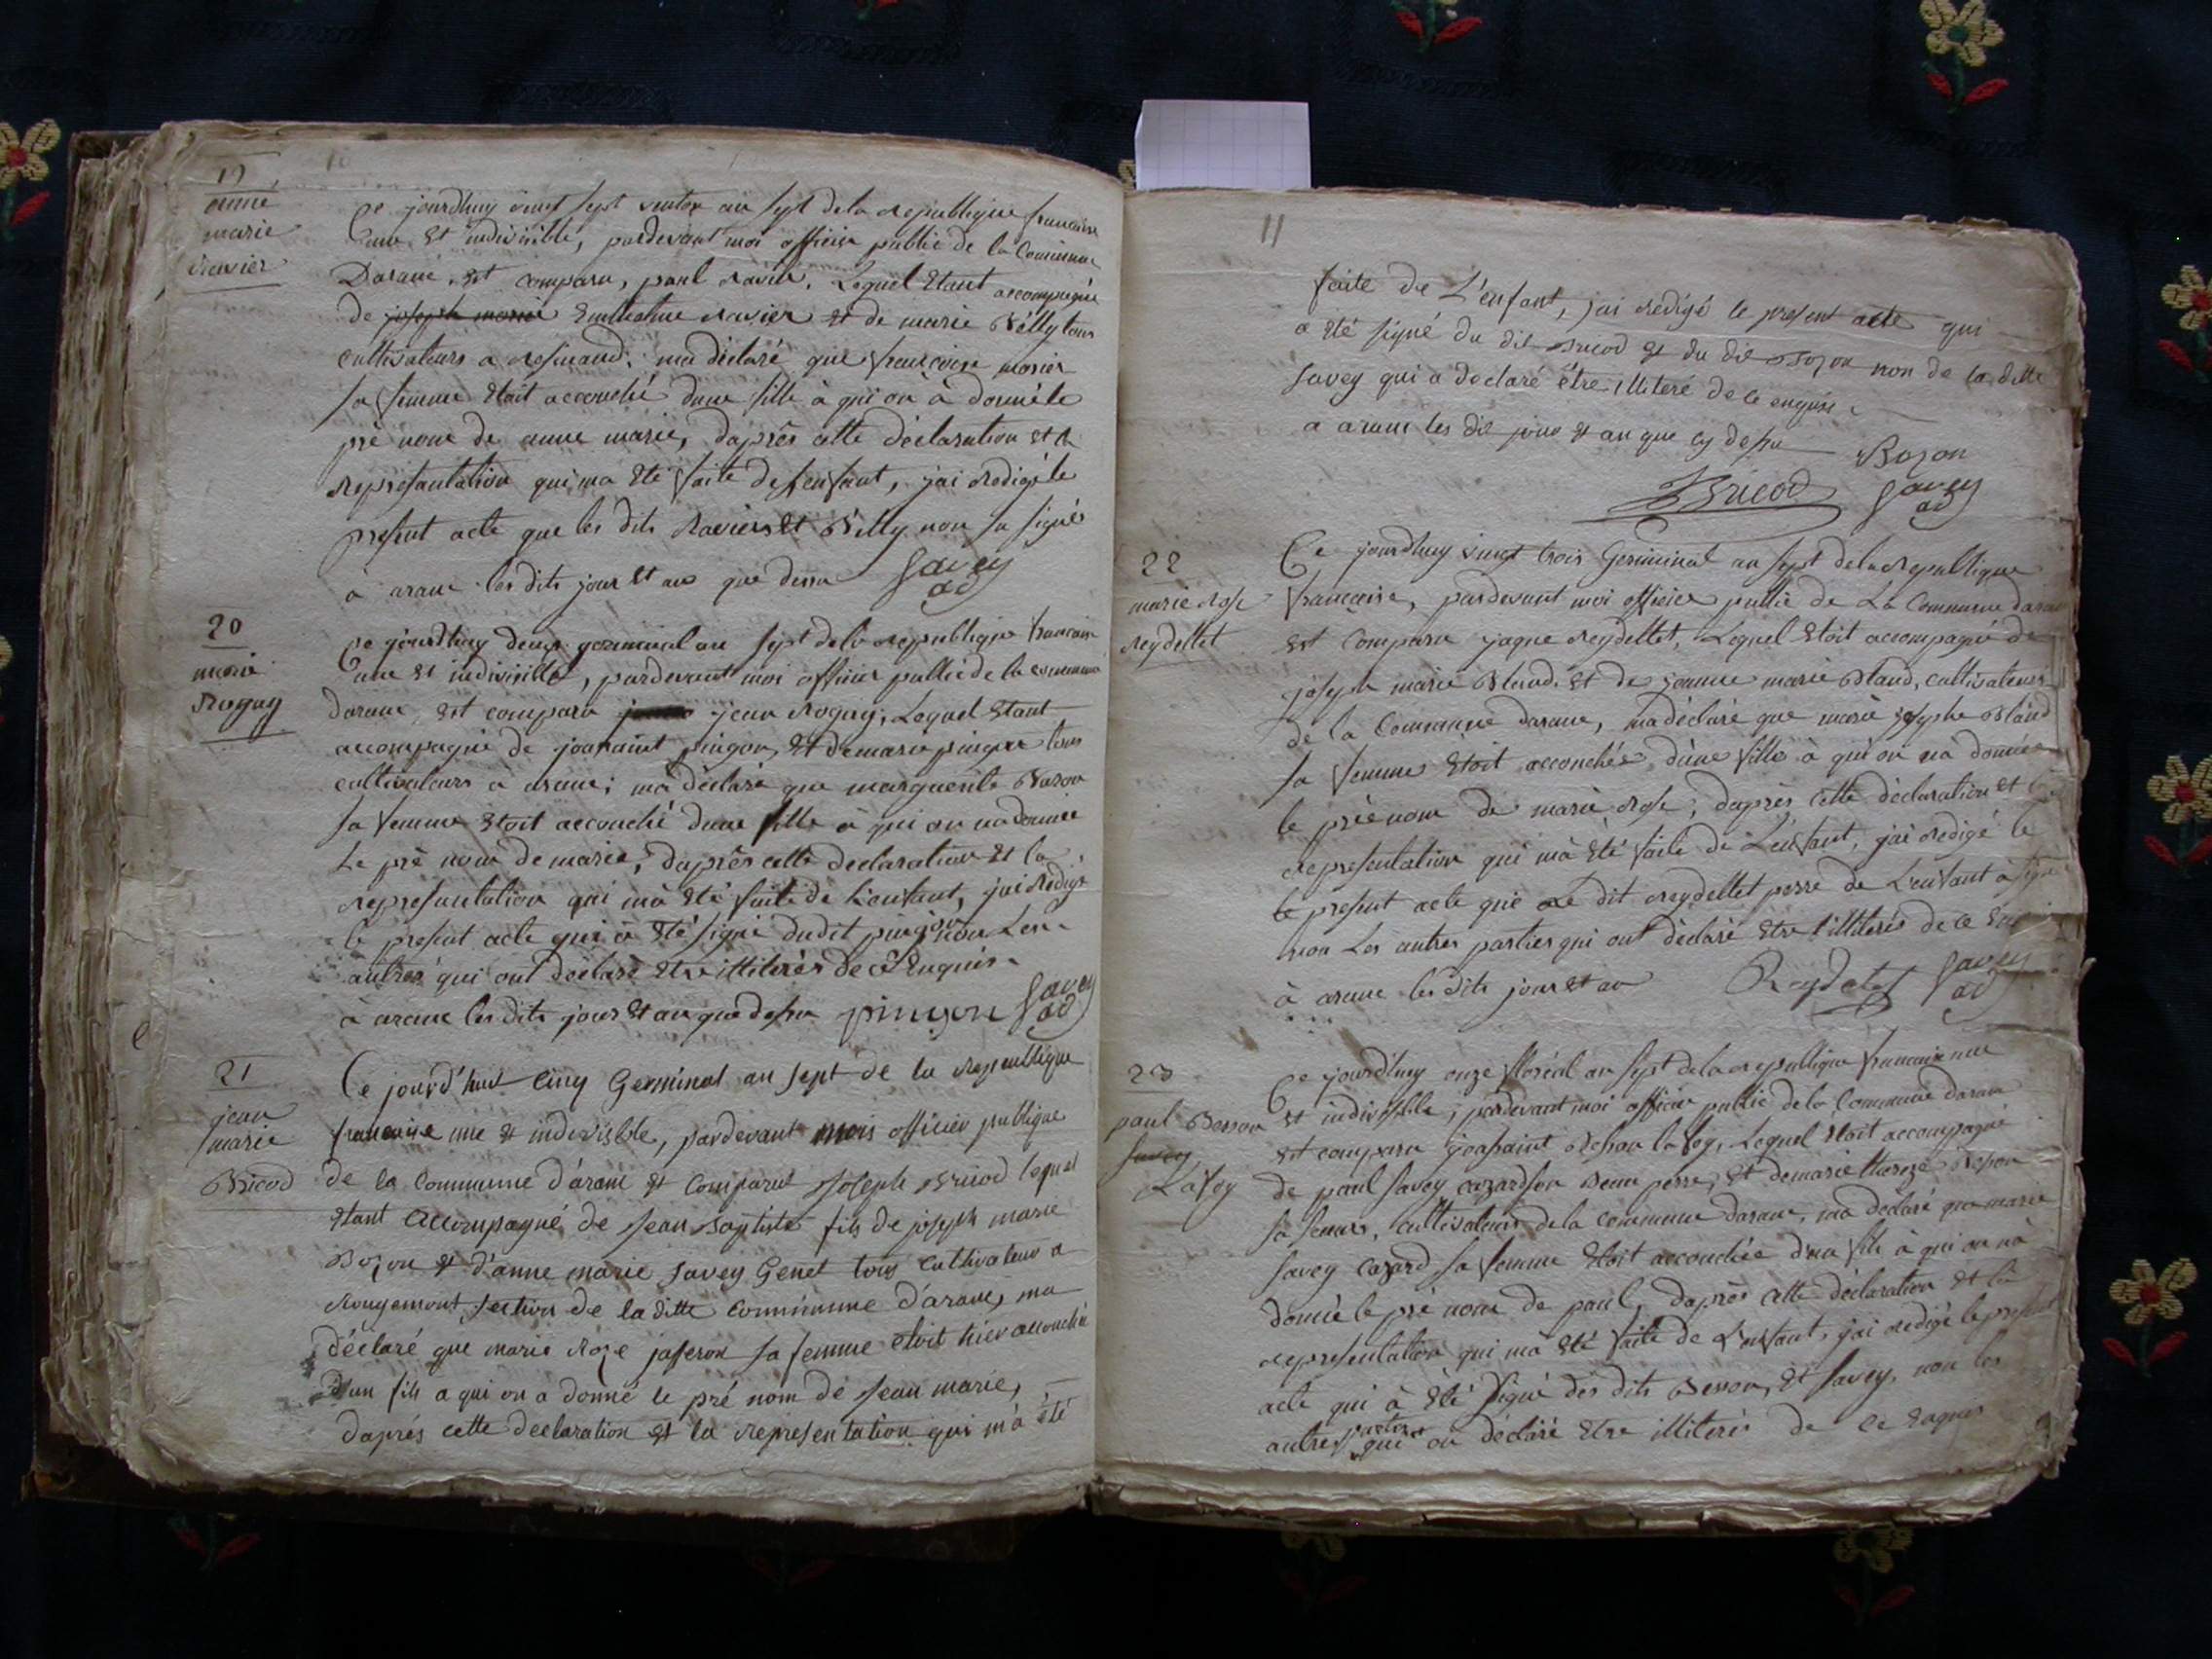 19
10
anne
marie
Ravier
Ce jourdhuy vingt sept ventos an sept de la republique francaise
une et indivisible, pardevant moi officier public de la Commune
Darane, est comparu, paul Ravier, Lequel Etant accompagné
de joseph marie Ravier et de marie Billy tous
cultivateurs a Resinand; ma déclaré que francoise
sa femme Etoit accouché dune fille à qui on à donné le
pré nom de anne marie, daprès cette déclaration et la
Representation qui ma Eté faite de lenfant, jai Redigé le
present acte que les dits Raviers et Billy non su signé
à arane les dits jour et an que dessu
Savey
ad
20
marie
Rogay
Ce jourdhuy deux germinal an sept de la republique francaise
une et indivisible, pardevant moi officier public de la commune
darane, est comparu jean Rogay, Lequel Etant
accompagné de joursaint pingon, et de marie pingon tous
cultivateurs a arane; ma déclaré que marguerite
sa femme Etoit accouché dune fille à qui on na donné
Le pré nom de marie, daprès cette declaration et la
representation qui mà Eté faite de Lenfant, jai Redigé
le present acte qui à Eté signé dudit pingon non Les
autres qui ont déclaré Etre illiterés de ce Enquis
à arane les dits jour et an que dessu pingon Savey
ad
21
jean
marie
Bricod
Ce jourd'hui cinq Germinal an sept de la Republique
francaise une et indivisible, pardevant mois officier publique
de la Commune d'arane et comparut Joseph Bricod lequel
étant accompagné de Jean Baptiste fils de joseph marie
Bozon et d'anne marie Savey Genet tous cultivateur a
Rougemont section de la ditte commimune d'arane, ma
déclaré que marie Roze josseron sa femme étoit hier accouchée
d'un fils a qui on a donné le pré nom de Jean marie,
daprés cette declaration et la representation qui m'a été
11
faite de L'enfant, jai redigé le present acte qui
a été signé du dit Bricod et du dit Bozon non de la ditte
Savey qui a declaré être illiteré de ce enquise
a arane les dit jour et an que cy dessu
Bozon
Bricod Savey
ad
22
marie Rose
Reydellet
Ce jourdhuy vingt trois Germinal an sept de la Republique
francaise, pardevant moi officier public de La Commune darane
est comparu jaque Reydellet, Lequel Etoit accompagné de
joseph marie Bland et de jeanne marie Bland, cultivateurs
de la Commune darane, ma déclaré que marie josephe Bland
sa femme Etoit accouchée dùne fille à qui on na donnée
le prénom de marie Rose; daprès cette déclaration et la
Representation qui mà Eté faite de Lenfant, jai Redigé le
le present acte que Le dit Reydellet perre de Lenfant à signé
non Les autres parties qui ont déclaré Etre illiterés de ce
à arane les dits jour et an Reydelet Savey
ad
23
paul Besson
Savey
Lafoy
Ce jourdhuy onze floréal an sept de la republique francaise une
et indivisible, pardevant moi officier public de la Commune darane
est comparu Besson lafoy, Lequel Etoit accompagné
de paul Savey cazard son beau perre, et de marie thereze Besson
sa seure, cultivateurs de la commune darane, ma déclaré que marie
Savey cazard sa femme Etoit accouchée d'un fils à qui on nà
donné le pré nom de paul, daprès cette déclaration et la
representation qui mà Eté faite de Lenfant, jai redigé le present
acte qui à Eté signé des dits Besson, et Savey, non les
autres parties qui on déclaré Etre illiterés de ce Enquis